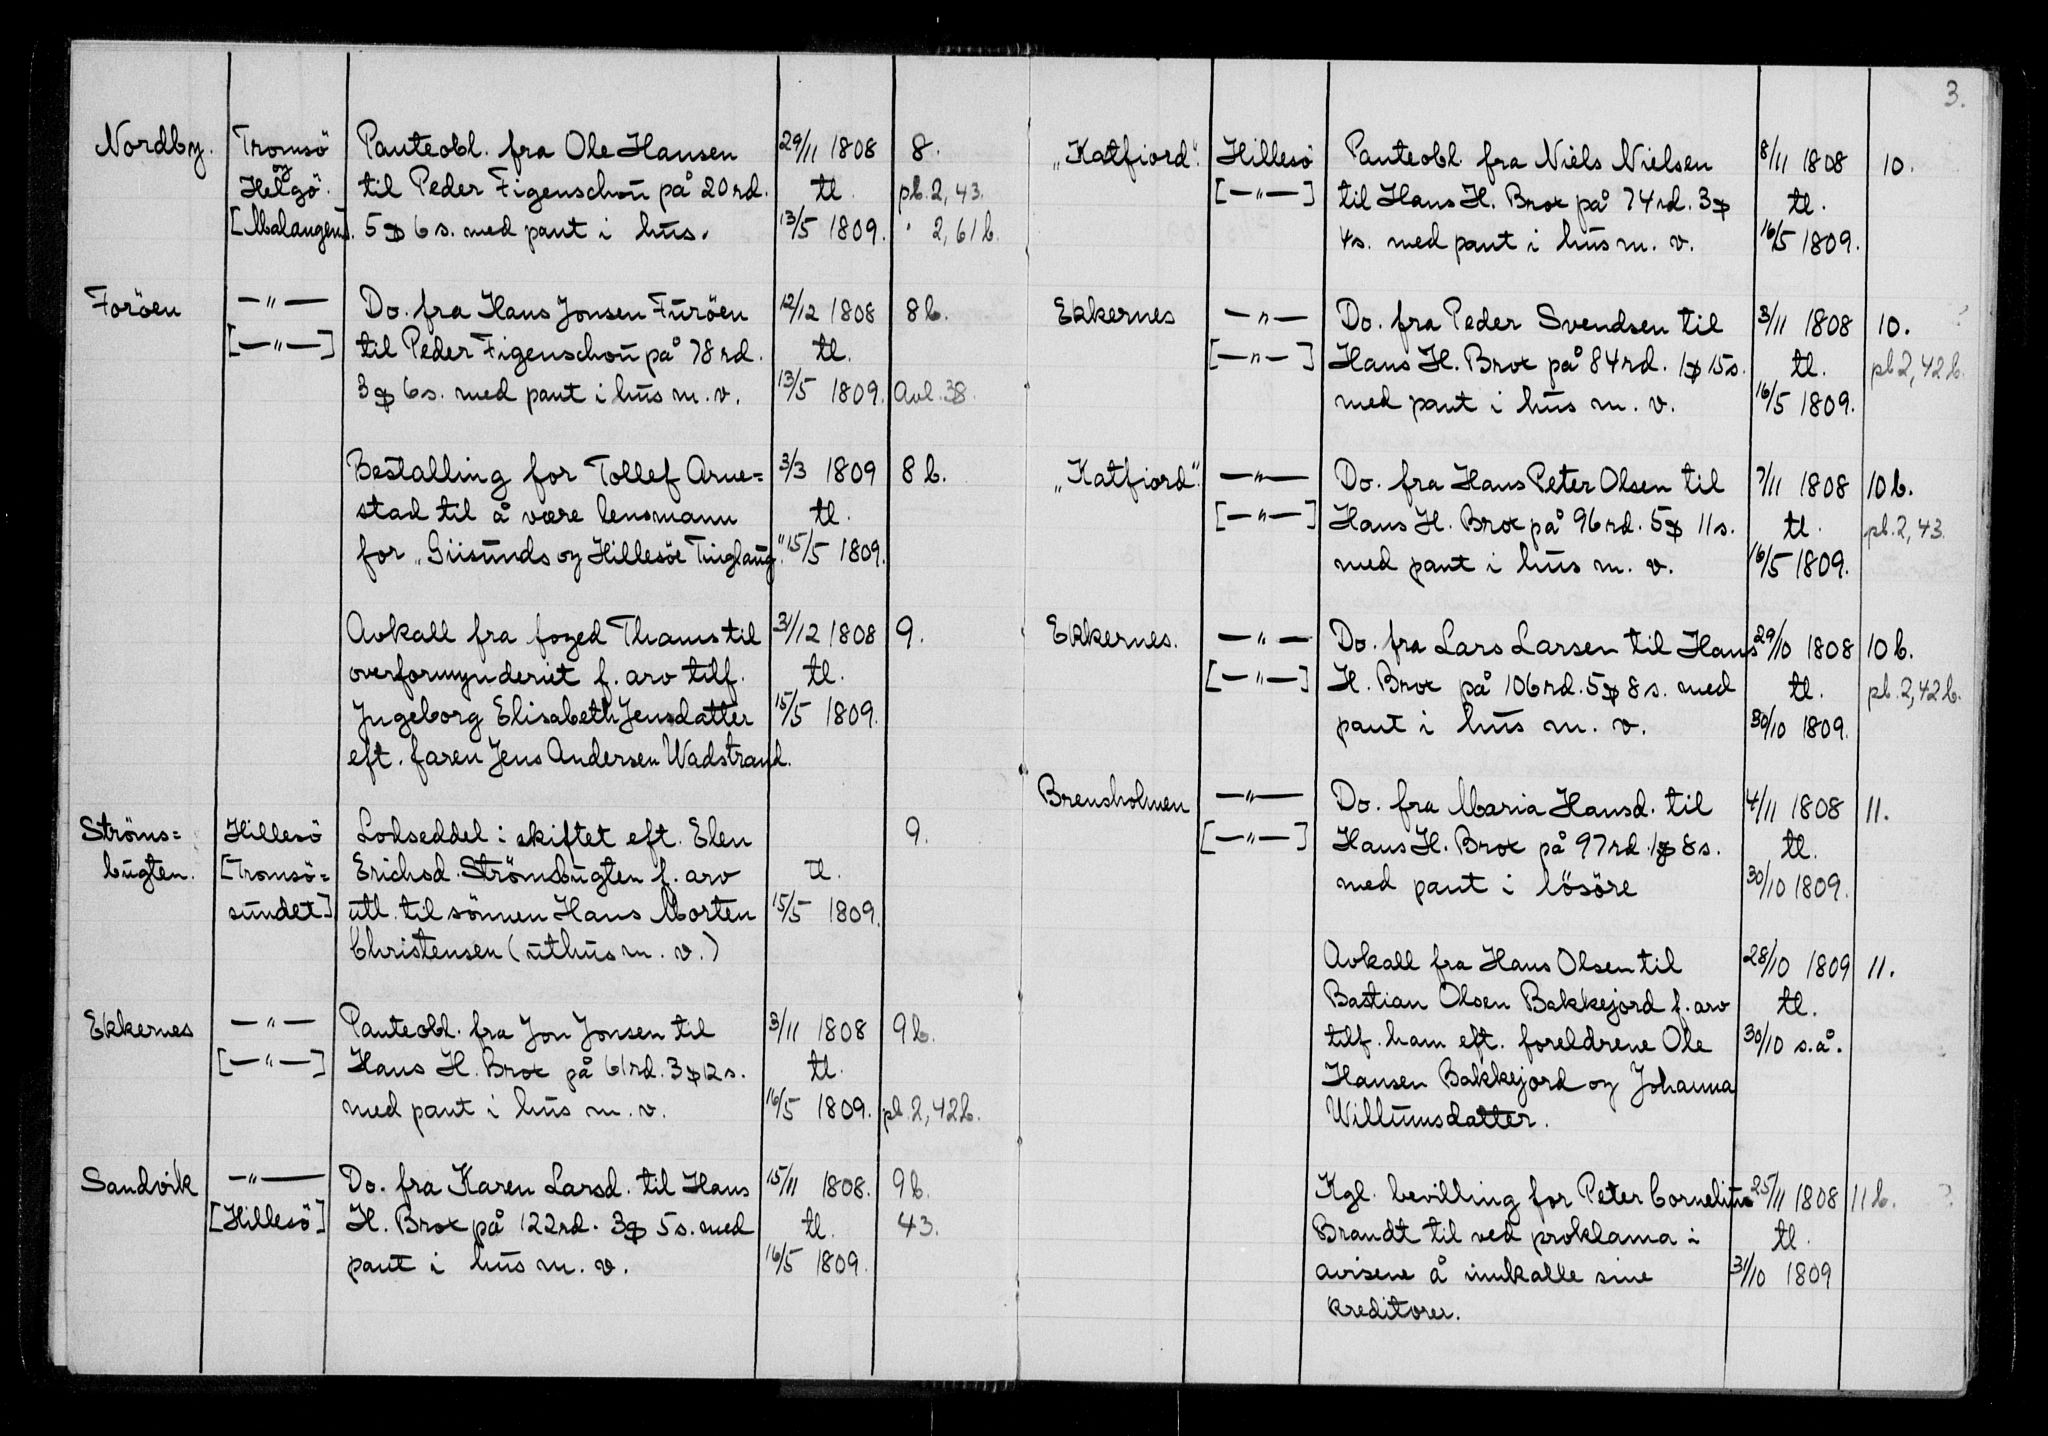 3.
Nordby. Tromsö Panteobl. fra Ole Hansen 29/11 1808 8.
og
Helgö. til Peder Figenschou på 20 rd. tl. pb. 2, 43.
[Malangen]. 5 ₻ 6 s. med pant i hus. 13/5 1809. " 2, 61 b.
Foröen —"— Do. fra Hans Jonsen Furöen 12/12 1808 8 b.
[—"—] til Peder Figenschou på 78 rd. tl.
3 ₻ 6 s. med pant i hus m. v. 13/5 1809. Avl. 38.
Bestalling for Tollef Arne= 3/3 1809 8 b.
stad til å være lensmann tl.
for „Giisunds og Hillesöe Tinglaug". 15/5 1809.
Avkall fra foged Thams til 31/12 1808 9.
overformynderiet f. arv tilf. tl.
Jngeborg Elisabeth Jensdatter 15/5 1809.
eft. faren Jens Andersen Wadstrand.
Ströms= Hillesö Lodseddel i skiftet eft. Elen 9.
bugten. [Tromsö= Erichsd. Strömsbugten f. arv tl.
sundet] utl. til sönnen Hans Morten 15/5 1809.
Christensen (uthus m. v.)
Ekkernes —"— Panteobl. fra Jon Jonsen til 3/11 1808 9 b.
[—"—] Hans H. Brox på 61 rd. 3 ₻ 12 s. tl.
med pant i hus m. v. 16/5 1809. pb. 2, 42 b.
Sandvik —"— Do. fra Karen Larsd. til Hans 15/11 1808. 9 b.
[Hillesö] H. Brox på 122 rd. 3 ₻ 5 s. med tl. 43.
pant i hus m. v. 16/5 1809.
„Katfiord". Hillesö Panteobl. fra Niels Nielsen 8/11 1808 10.
[—"—] til Hans H. Brox på 74 rd. 3 ₻ tl.
4 s. med pant i hus m. v. 16/5 1809.
Ekkernes —"— Do. fra Peder Svendsen til 3/11 1808 10. ?
[—"—] Hans H. Brox på 84 rd. 1 ₻ 15 s. tl. pb 2, 42 b.
med pant i hus m. v. 16/5 1809.
„Katfiord". —"— Do. fra Hans Peter Olsen til 7/11 1808 10 b.
[—"—] Hans H. Brox på 96 rd. 5 ₻ 11 s. tl. pb. 2, 43.
med pant i hus m. v. 16/5 1809.
Ekkernes. —"— Do. fra Lars Larsen til Hans 29/10 1808 10 b.
[—"—] H. Brox på 106 rd. 5 ₻ 8 s. med tl. pb. 2, 42 b.
pant i hus m. v. 30/10 1809.
Brensholmen —"— Do. fra Maria Hansd. til 4/11 1808 11.
[—"—] Hans H. Brox på 97 rd. 1 ₻ 8 s. tl.
med pant i lösöre 30/10 1809.
Avkall fra Hans Olsen til 28/10 1809 11.
Bastian Olsen Bakkejord f. arv tl.
tilf. ham eft. foreldrene Ole 30/10 s.å.
Hansen Bakkejord og Johanna
Willumsdatter.
Kgl. bevilling for Peter Cornelius 25/11 1808 11 b. ?
Brandt til ved proklama i tl.
avisene å innkalle sine 31/10 1809
kreditorer.